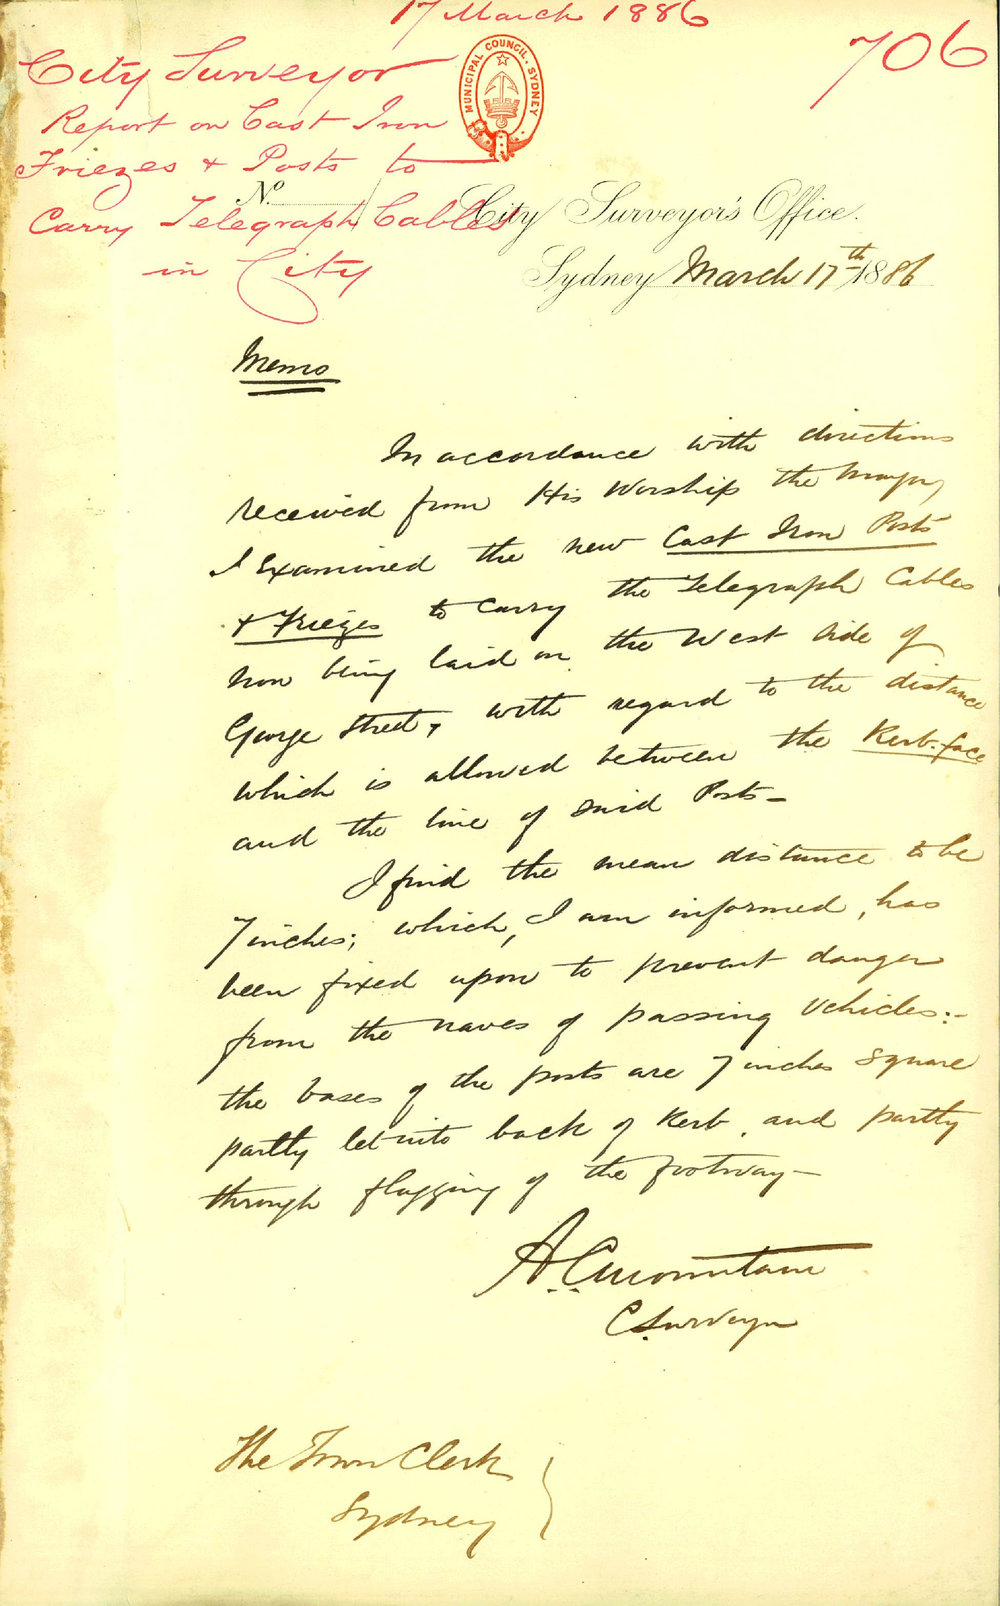 17 March 1886
706
City Surveyor
Report on Cast Iron
Friezes & Posts to
Carry Telegraph Cables
in City
MUNICIPAL COUNCIL. SYDNEY
No.
City Surveyor's Office.
Sydney March 17th 1886
Memo
In accordance with directions
received from His Worship the Mayor,
I Examined the new Cast Iron Posts
& Friezes to carry the Telegraph Cables
now being laid on the West side of
George Street, with regard to the distance
which is allowed between the Kerb-face
and the line of said Posts –
I find the mean distance to be
7 inches; which, I am informed, has
been fixed upon to prevent danger
from the naves of passing vehicles:–
the bases of the posts are 7 inches square
partly let into back of Kerb, and partly
through flagging of the footway –
A. C. Mountain
C. Surveyor
The Town Clerk
Sydney